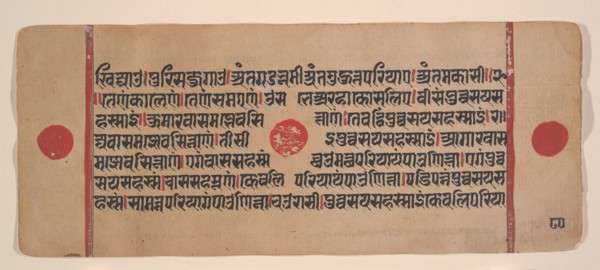 खिज्जाउ। पुरिसजुगाउ। अंतगडभूमी अंतमुहुत्तपरियाए। अंतमकासी॥
॥तेणं कालेणं। तेणं समएणं। उसभे णं अरहा कोसलिए। वीसं पुव्वसयस
हस्साइं। कुमारवासमज्झे वसित्ताणं। तेवट्ठिं पुव्वसयसहस्साइं। र॥
ज्जवासमज्झे वसित्ताणं। तेसीइं पुव्वसयसहस्साइं। अगारवास
मज्झे वसित्ताणं। एगं वाससहस्सं छउमत्थपरियायं पाउणित्ता। एगं पुव्व
सयसहस्सं। वाससहस्सूणं। केवलिपरियायं पाउणित्ता। पडिपुन्नं पुव्वसयस
हस्सं। सामन्नपरियागं पाउणित्ता। चउरासीइं। पुव्वसयसहस्साइं केवलिपरिया